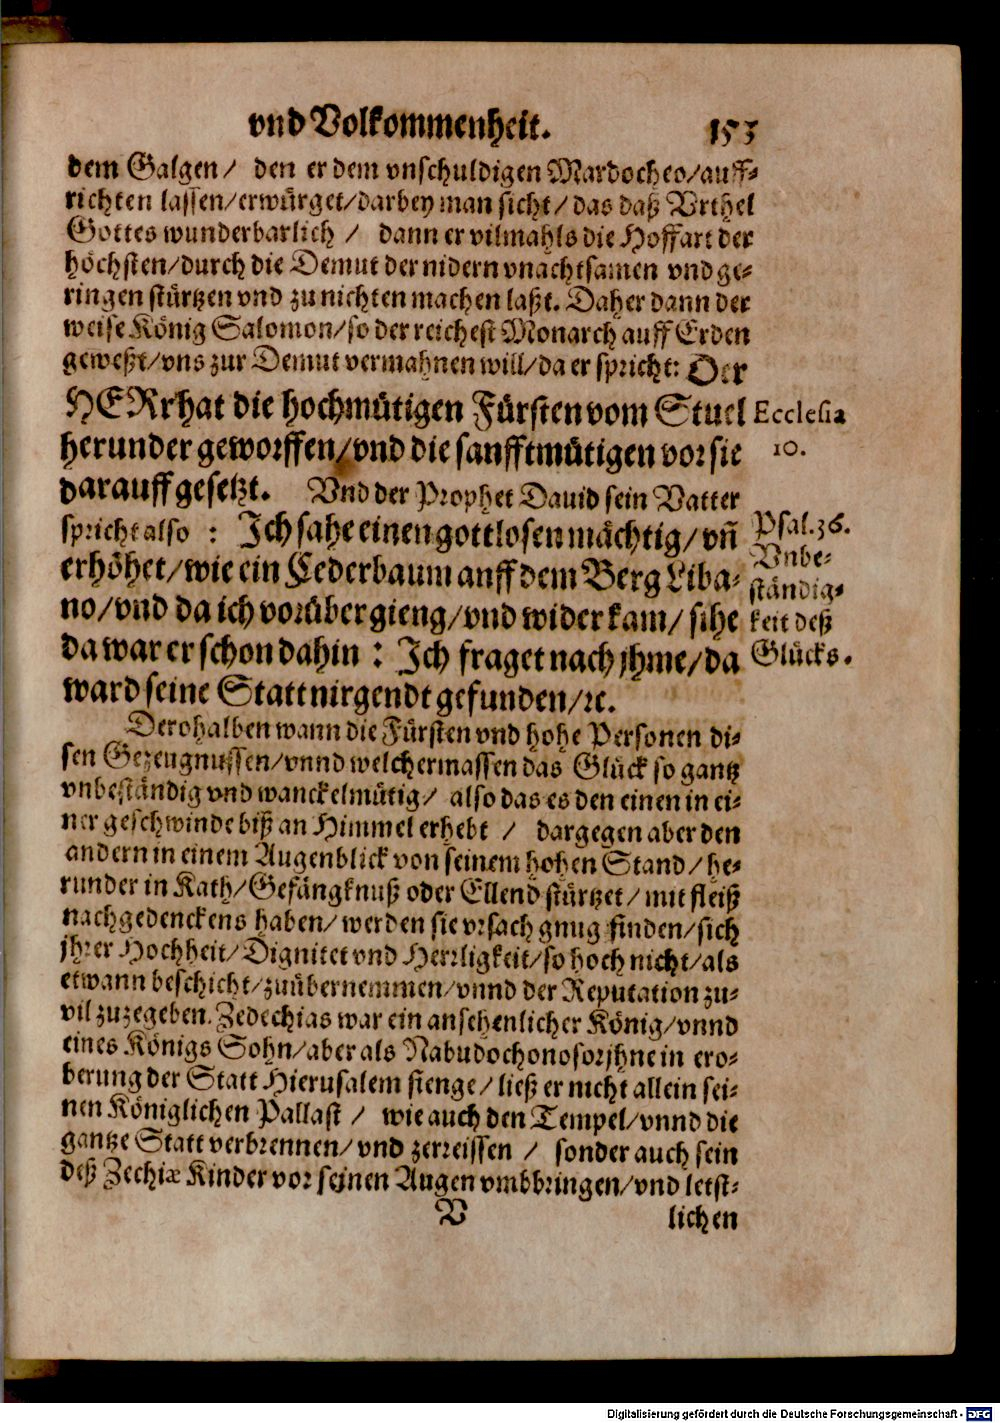 vnd Volkommenheit. 153
dem Galgen/ den er dem vnschuldigen Mardocheo/auff-
richten lassen/erwürget/darbey man sicht/das daß Vrthel
Gottes wunderbarlich / dann er vilmahls die Hoffart der
höchsten/durch die Demut der nidern vnachtsamen vnd ge-
ringen stürtzen vnd zu nichten machen laßt. Daher dann der
weise König Salomon/so der reichest Monarch auff Erden
geweßt/vns zur Demut vermahnen will/da er spricht: Der
HERr hat die hochmütigen Fürsten vom Stuel
herunder geworffen/vnd die sanfftmütigen vor sie
darauff gesetzt. Vnd der Prophet Dauid sein Vatter
spricht also : Ich sahe einen gottlosen mächtig/vñ
erhöhet/wie ein Cederbaum anff dem Berg Liba-
no/vnd da ich vorüber gieng/vnd wider kam/ sihe
da war er schon dahin : Ich fraget nach jhme/da
ward seine Statt nirgendt gefunden/ꝛc.
Ecclesia
10.
Psal.36.
Vnbe-
ständig-
keit deß
Glücks.
Derohalben wann die Fürsten vnd hohe Personen di-
sen Gezeugnussen/vnnd welchermassen das Glück so gantz
vnbeständig vnd wanckelmütig/ also das es den einen in ei-
ner geschwinde biß an Himmel erhebt / dargegen aber den
andern in einem Augenblick von seinem hohen Stand/he-
runder in Kath/Gefängknuß oder Ellend stürtzet/mit fleiß
nachgedenckens haben/werden sie vrsach gnug finden/sich
jhrer Hochheit/Dignitet vnd Herrligkeit/so hoch nicht/als
etwann beschicht/zuübernemmen/vnnd der Reputation zu-
vil zuzegeben. Zedechias war ein ansehenlicher König/vnnd
eines Königs Sohn/aber als Nabudochonosor jhne in ero-
berung der Statt Hierusalem fienge/ließ er nicht allein sei-
nen Königlichen Pallast / wie auch den Tempel/vnnd die
gantze Statt verbrennen/vnd zerreissen / sonder auch sein
deß Zechiæ Kinder vor seinen Augen vmbbringen/vnd letst-
V lichen
Digitalisierung gefördert durch die Deutsche Forschungsgemeinschaft - DFG